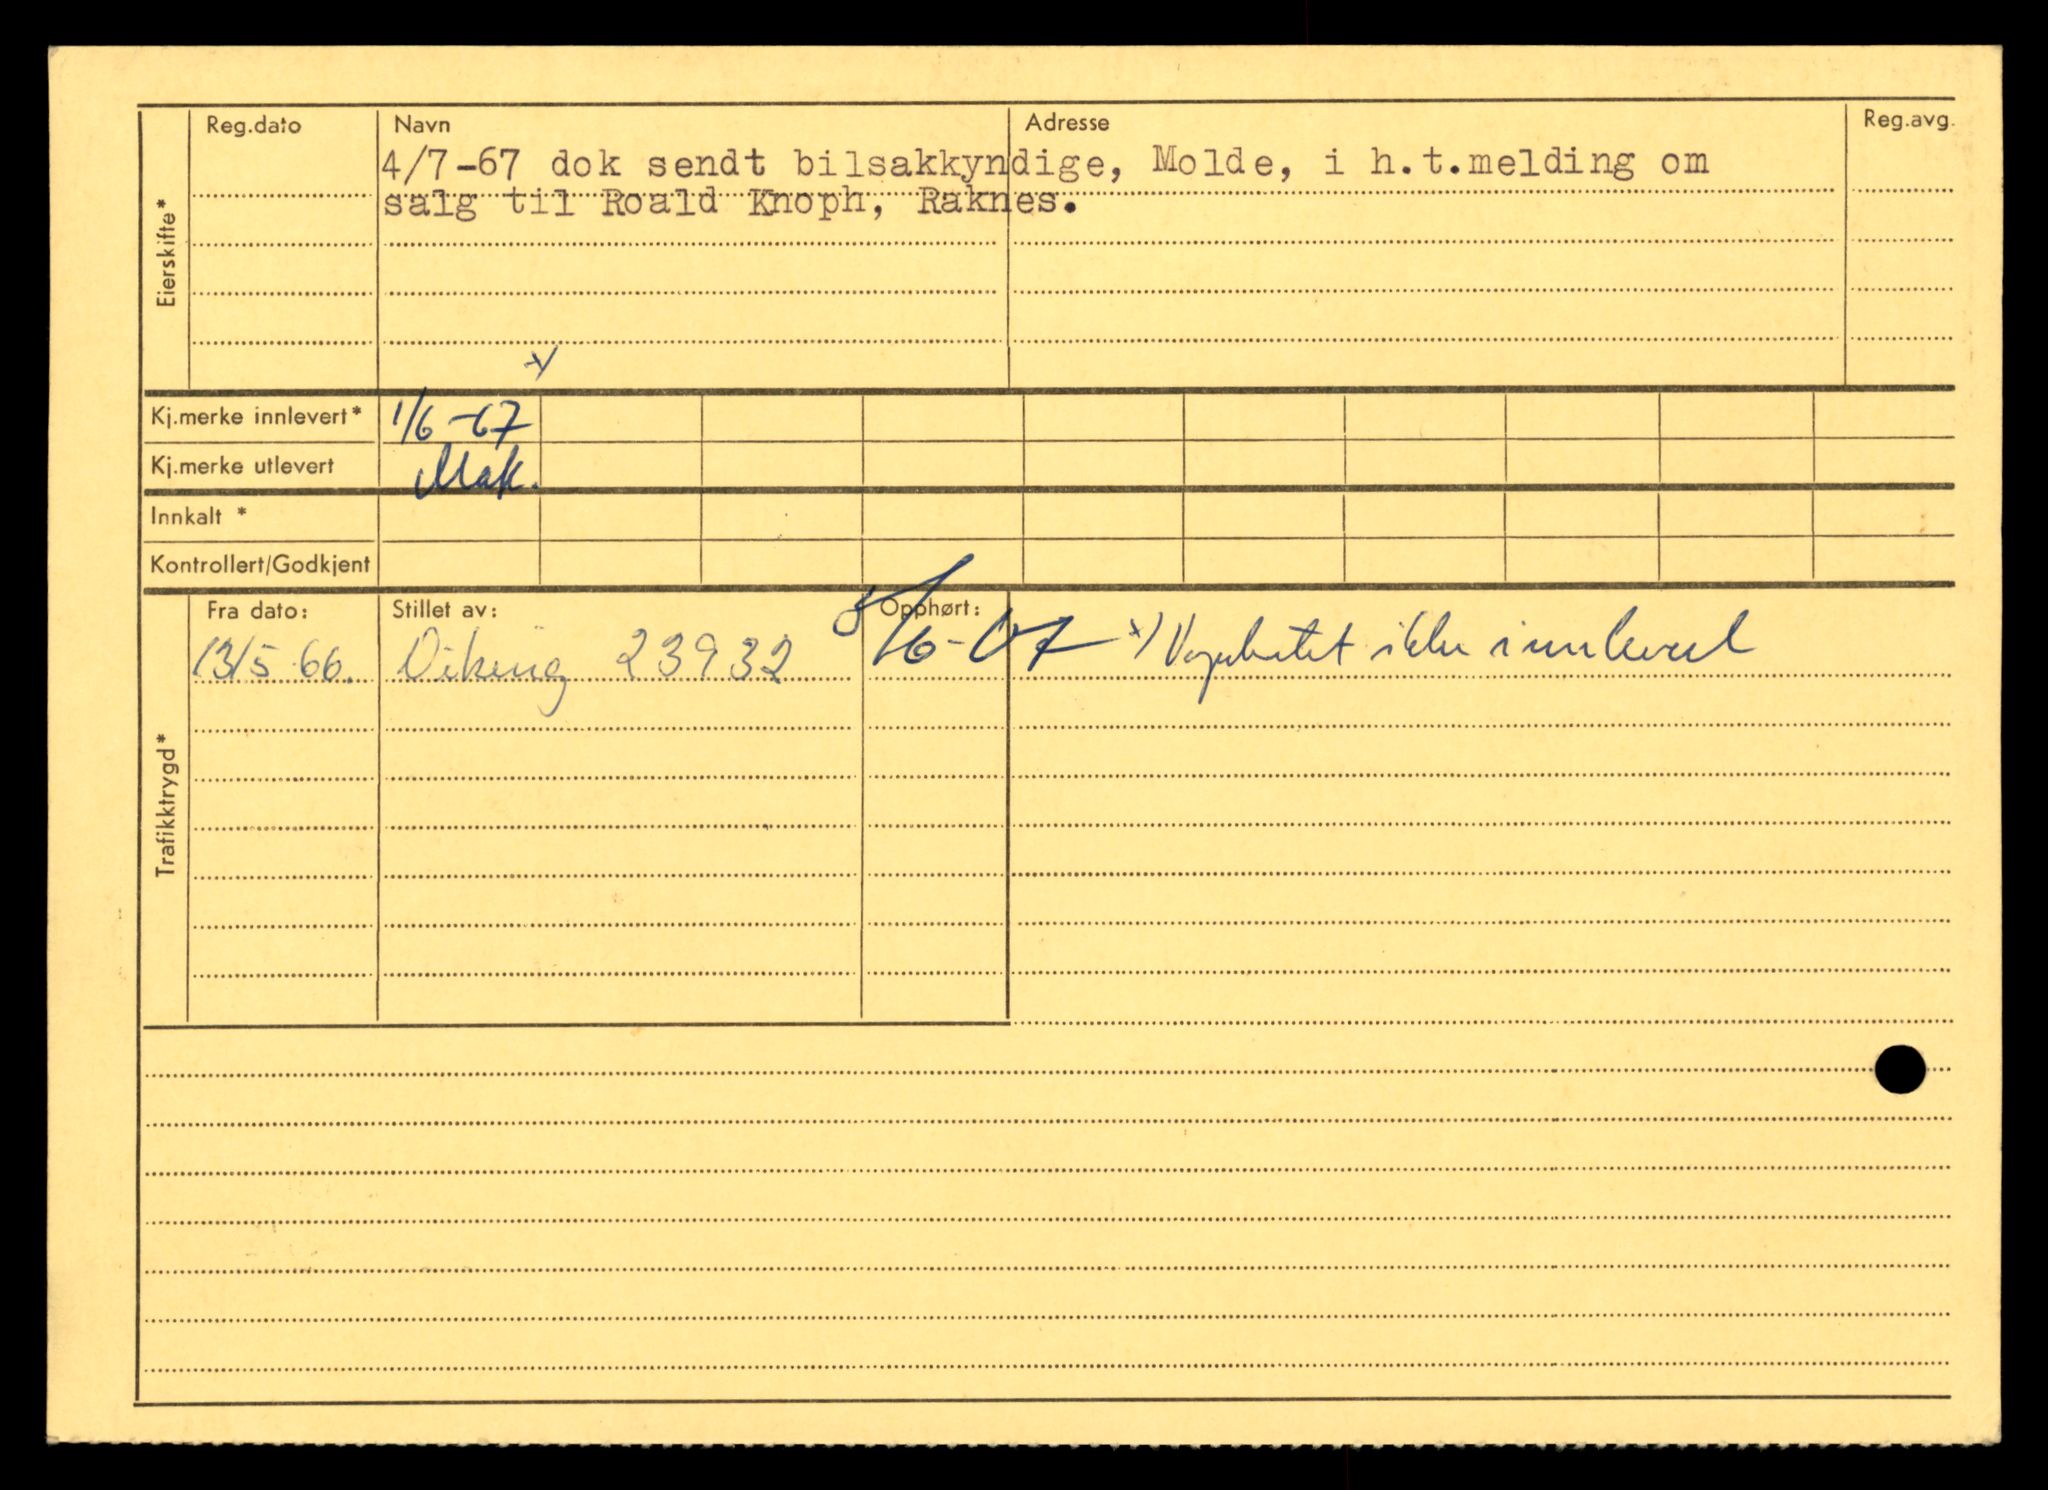 Reg.dato Navn Adresse Reg.avg.
4/7-67 dok sendt bilsakkyndige, Molde, i h.t.melding om
salg til Roald Knoph, Raknes.
Eierskifte*
*)
Kj.merke innlevert* 1/6-67
Kj.merke utlevert
Innkalt *
Kontrollert/Godkjent
Fra dato: Stillet av: Opphørt:
13/5 66. Viking 23932 /6-67 *) Vognkortet ikke innlevert
Trafikktrygd*